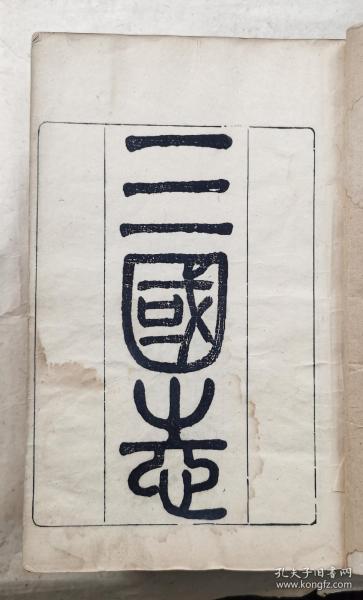 三國志
孔夫子旧书网
www.kongfz.com